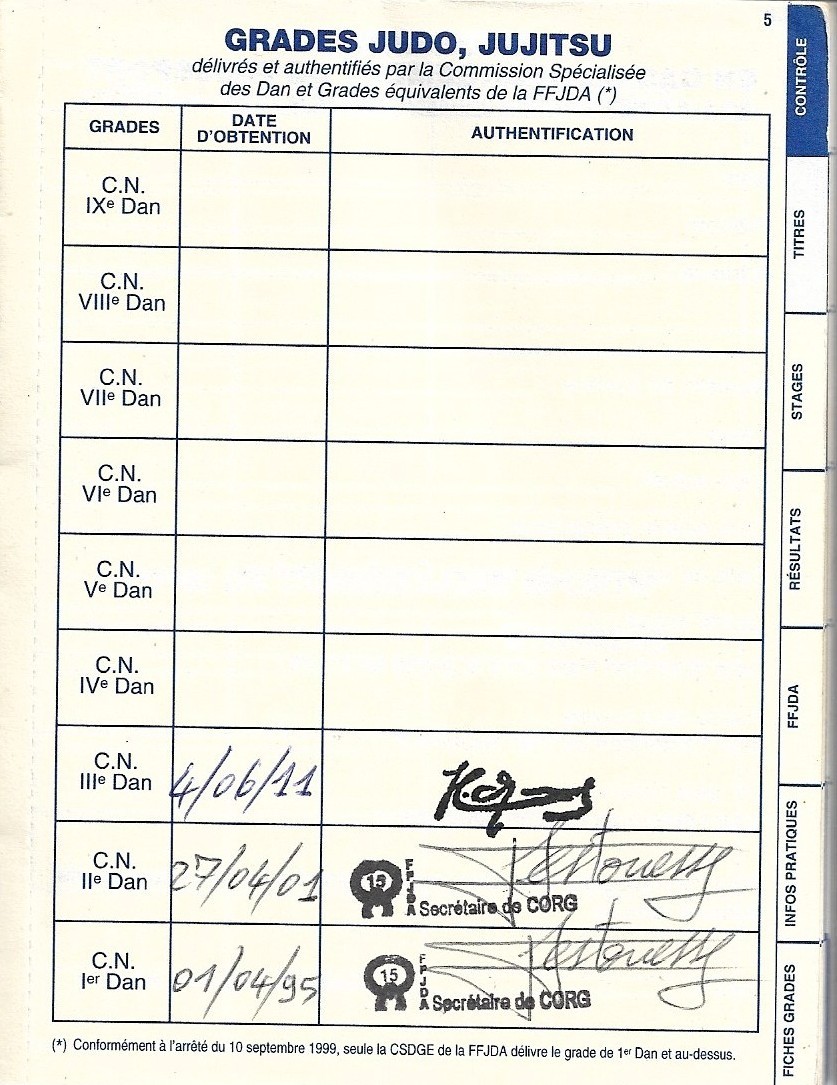 5
GRADES JUDO, JUJITSU
délivrés et authentifiés par la Commission Spécialisée
des Dan et Grades équivalents de la FFJDA (*)
GRADES
DATE
D'OBTENTION
AUTHENTIFICATION
C.N.
IXe Dan
C.N.
VIIIe Dan
C.N.
VIIe Dan
C.N.
VIe Dan
C.N.
Ve Dan
C.N.
IVe Dan
C.N.
IIIe Dan
4/06/11
C.N.
IIe Dan
27/04/01
15
FFJDA
Secrétaire de CORG
C.N.
Ier Dan
01/04/95
15
FFJDA
Secrétaire de CORG
(*) Conformément à l'arrêté du 10 septembre 1999, seule la CSDGE de la FFJDA délivre le grade de 1er Dan et au-dessus.
CONTRÔLE
TITRES
STAGES
RÉSULTATS
FFJDA
INFOS PRATIQUES
FICHES GRADES